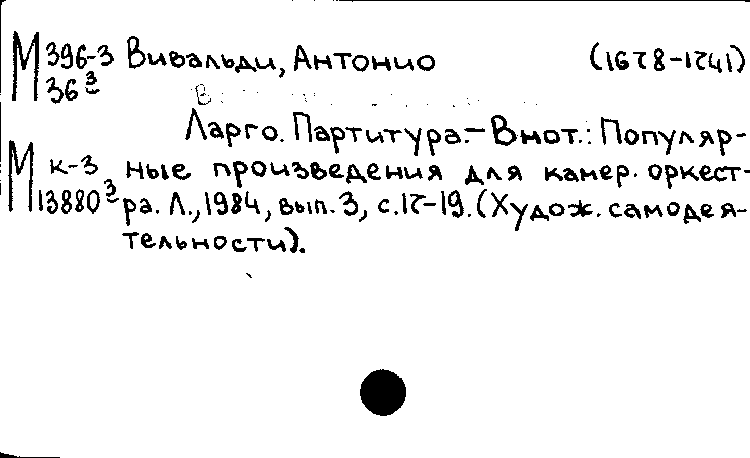 М 396-3 Вивальди, Антонио (1678-1741)
36 3
Ларго. Партитура.- В нот.: Популяр-
М к-3 ные произведения для камер. оркест-
13880 3 ра. Л., 1984, вып. 3, с.17-19. (Худож. самодея-
тельности).